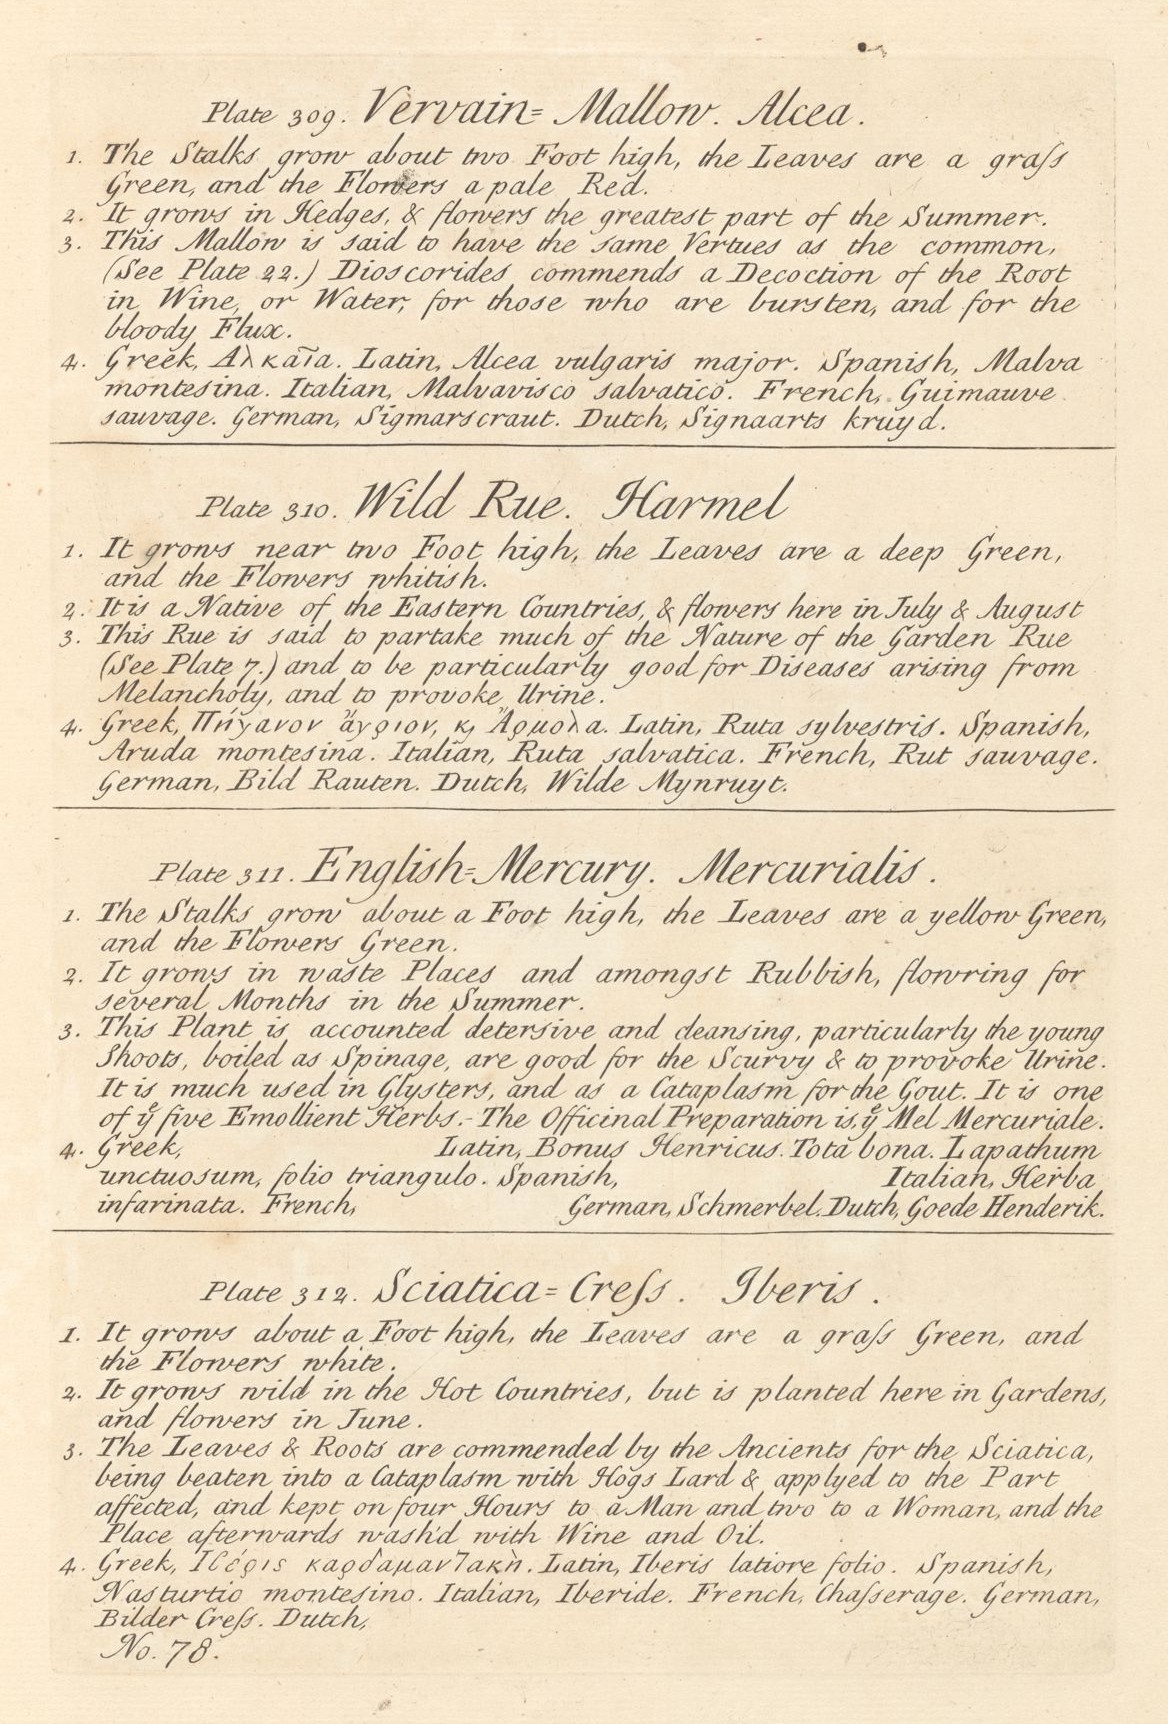 Plate 309. Vervain= Mallow. Alcea.
1. The Stalks grow about two Foot high, the Leaves are a graſs
Green, and the Flowers a pale Red.
2. It grows in Hedges, & flowers the greatest part of the Summer.
3. This Mallow is said to have the same Vertues as the common,
(See Plate 22.) Dioscorides commends a Decoction of the Root
in Wine, or Water, for those who are bursten, and for the
bloody Flux.
4. Greek, Αλκαῖα. Latin, Alcea vulgaris major. Spanish, Malva
montesina. Italian, Malvavisco salvatico. French, Guimauve
sauvage. German, Sigmarscraut. Dutch, Signaarts kruyd.
Plate 310. Wild Rue. Harmel
1. It grows near two Foot high, the Leaves are a deep Green,
and the Flowers whitish.
2. It is a Native of the Eastern Countries, & flowers here in July & August
3. This Rue is said to partake much of the Nature of the Garden Rue
(See Plate 7.) and to be particularly good for Diseases arising from
Melancholy, and to provoke Urine.
4. Greek, Πήγανον ἄγριον, ϗ Ἄρμολα. Latin, Ruta sylvestris. Spanish,
Aruda montesina. Italian, Ruta salvatica. French, Rut sauvage.
German, Bild Rauten. Dutch, Wilde Mynruyt.
Plate 311. English=Mercury. Mercurialis.
1. The Stalks grow about a Foot high, the Leaves are a yellow Green,
and the Flowers Green.
2. It grows in waste Places and amongst Rubbish, flowring for
several Months in the Summer.
3. This Plant is accounted detersive and cleansing, particularly the young
Shoots, boiled as Spinage, are good for the Scurvy & to provoke Urine.
It is much used in Glysters, and as a Cataplasm for the Gout. It is one
of yͤ five Emollient Herbs.- The Officinal Preparation is, yͤ Mel Mercuriale.
4. Greek, Latin, Bonus Henricus. Tota bona. Lapathum
unctuosum, folio triangulo. Spanish, Italian, Herba
infarinata. French, German, Schmerbel. Dutch, Goede Henderik.
Plate 312. Sciatica= Creſs. Iberis.
1. It grows about a Foot high, the Leaves are a graſs Green, and
the Flowers white.
2. It grows wild in the Hot Countries, but is planted here in Gardens,
and flowers in June.
3. The Leaves & Roots are commended by the Ancients for the Sciatica,
being beaten into a Cataplasm with Hogs Lard & applyed to the Part
affected, and kept on four Hours to a Man and two to a Woman, and the
Place afterwards wash'd with Wine and Oil.
4. Greek, Ιϐέρις καρδαμαντακὴ. Latin, Iberis latiore folio. Spanish,
Nasturtio montesino. Italian, Iberide. French, Chaſserage. German,
Bilder Creſs. Dutch,
No. 78.